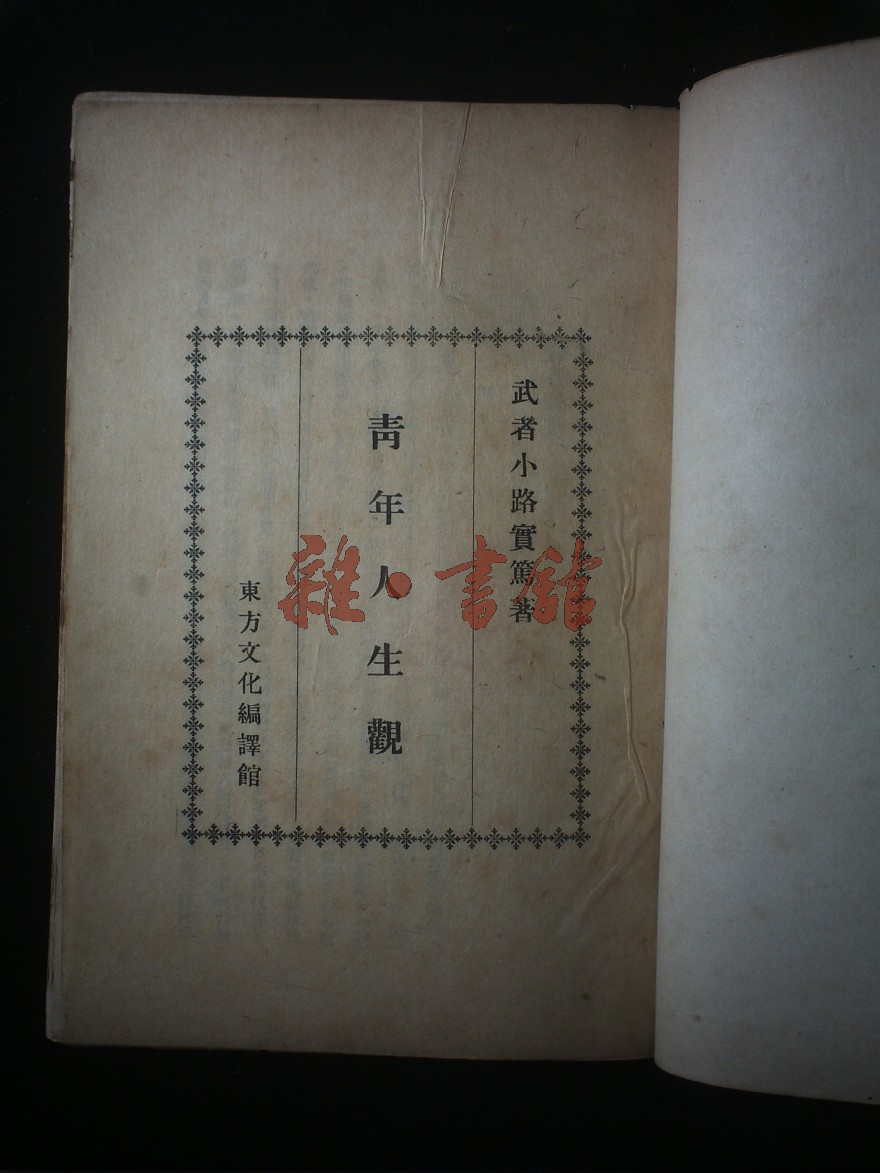 武者小路實篤著
青年人生觀
東方文化編譯館
雜·書館